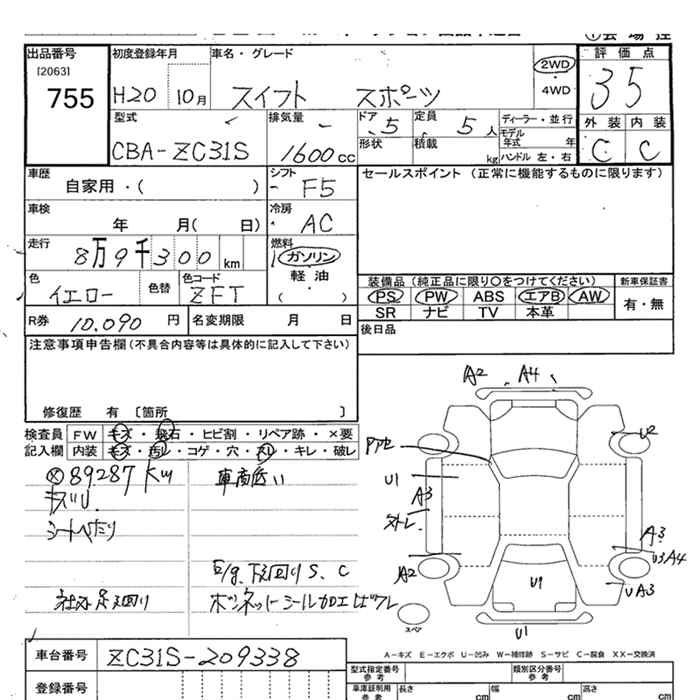 出品番号
[2063]
755
初度登録年月
H20 10月
車名・グレード
スイフト スポーツ
2WD
・
4WD
評価点
35
型式
CBA-ZC31S
排気量
1600cc
ドア
5
定員
5人
ディーラー・並行
モデル年式 年
形状
積載 kg
ハンドル 左・右
外装 内装
C C
車歴
自家用・( )
シフト
F5
セールスポイント (正常に機能するものに限ります)
車検
年 月( 日)
冷房
AC
走行
8万9千300km
燃料
ガソリン
軽油
( ・ )
色
イエロー
色替
色コード
ZFT
装備品 (純正品に限り○をつけてください)
新車保証書
PS PW ABS エアB AW
有・無
SR ナビ TV 本革
R券 10,090円
名変期限 月 日
後日品
注意事項申告欄 (不具合内容等は具体的に記入して下さい)
修復歴 有 〔箇所 〕
検査員記入欄
FW キズ・飛石・ヒビ割・リペア跡・×要
内装 キズ・汚レ・コゲ・穴・スレ・キレ・破レ
89287 Km
車高低い
シートへたり
下廻りS、C
ボンネットシール加工
A2 A4
U2
U1
A3
A3
U3A4
A2
U1
UA3
U1
スペア
A-キズ E-エクボ U-凹み W-補修跡 S-サビ C-腐食 XX-交換済
車台番号
ZC31S-209338
登録番号
型式指定番号
参考
類別区分番号
参考
車庫証明用
参考
長さ cm
幅 cm
高さ cm